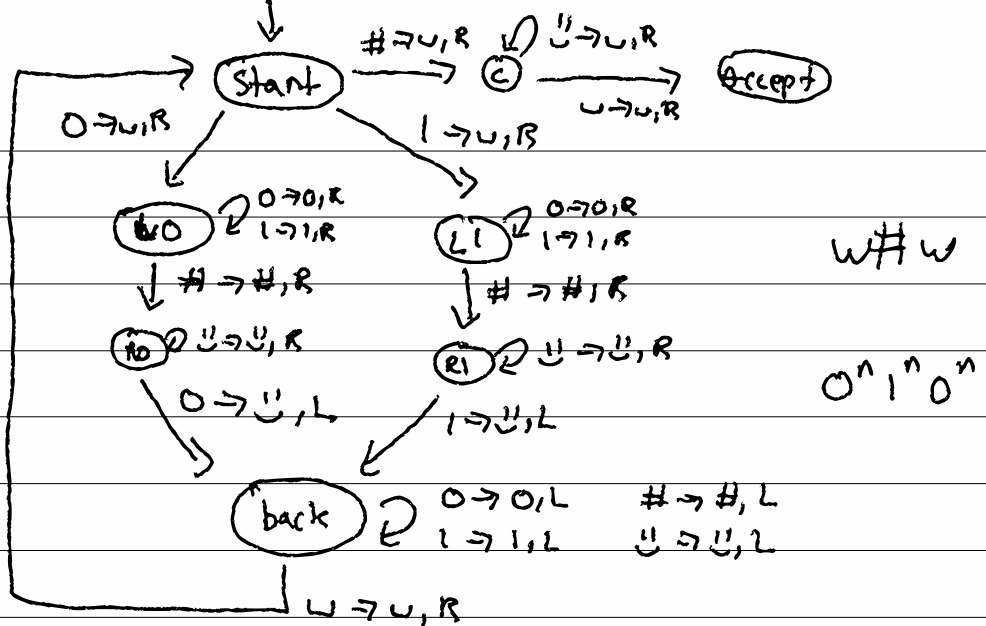 # → ⊔, R
☺ → ⊔, R
Start
C
Accept
⊔ → ⊔, R
0 → ⊔, R
1 → ⊔, R
0 → 0, R
1 → 1, R
L1
0 → 0, R
1 → 1, R
w#w
# → #, R
# → #, R
R0
☺ → ☺, R
R1
☺ → ☺, R
0ⁿ1ⁿ0ⁿ
0 → ☺, L
1 → ☺, L
back
0 → 0, L
# → #, L
1 → 1, L
☺ → ☺, L
⊔ → ⊔, R